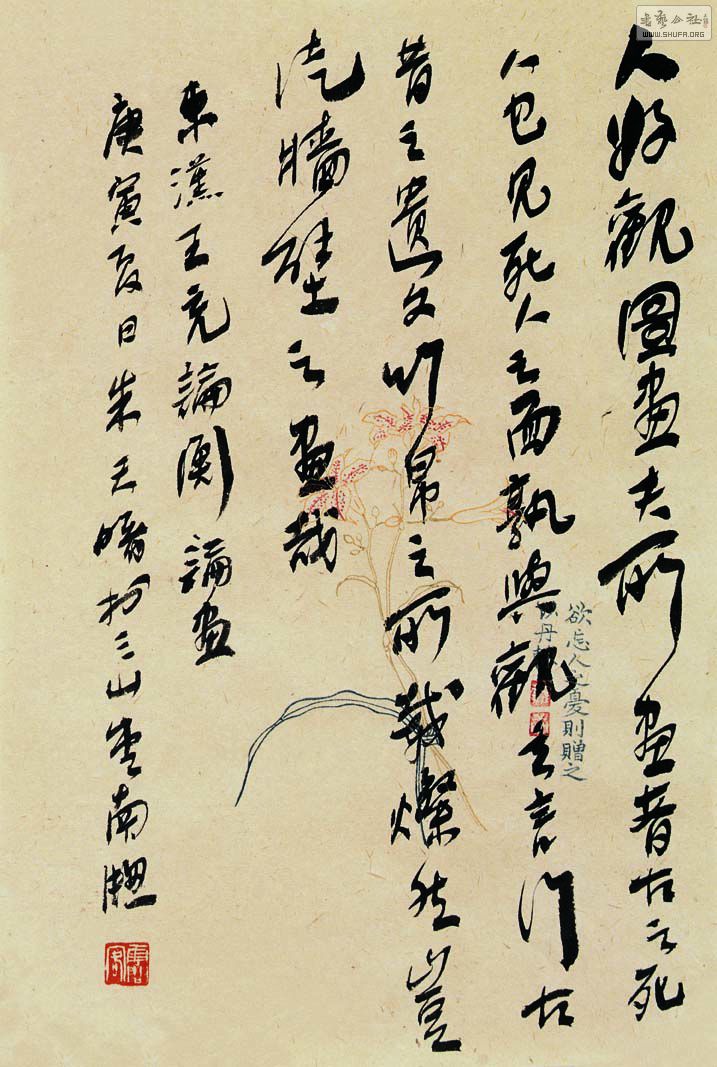 人好觀圖畫夫所畫昔古之死
人也見死人之面孰與觀之言行古
昔之遺文竹帛之所載燦然豈
徒牆壁之畫哉
東漢王充論衡論畫
庚寅夏日朱天曙於三山堂南牕
欲忘人之憂則贈之
以丹
書藝公社
WWW.SHUFA.ORG